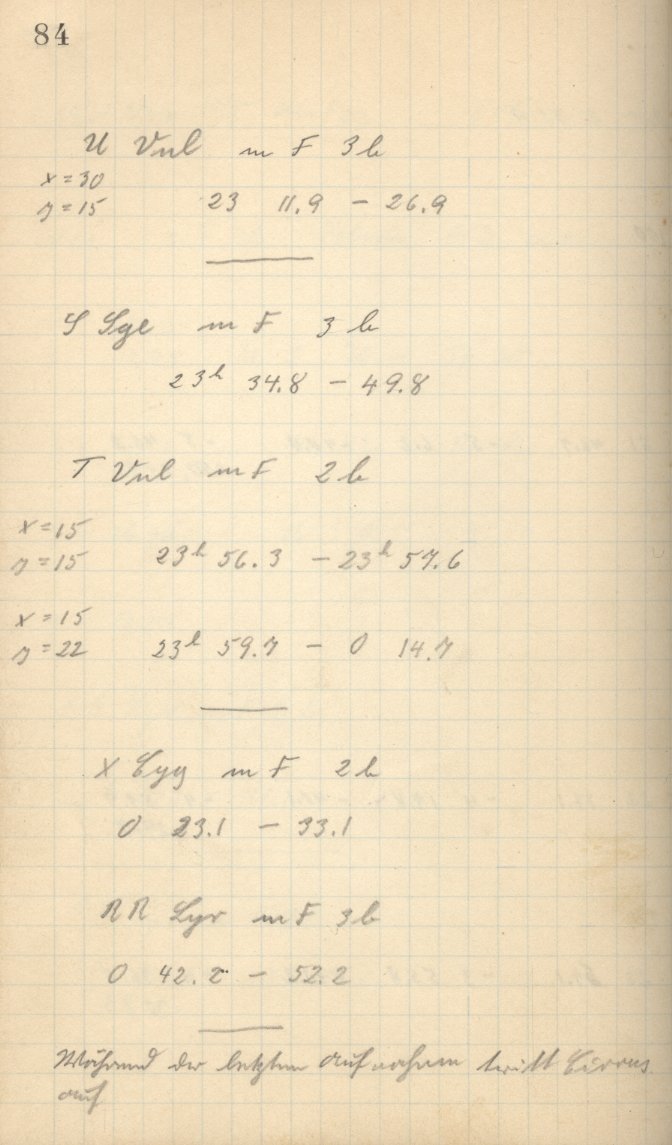 84
U Vul m F 3 b
x = 30
y = 15 23 11.9 – 26.9
S Sge m F 3 b
23h 34.8 – 49.8
T Vul m F 2 b
x = 15
y = 15 23h 56.3 – 23h 57.6
x = 15
y = 22 23h 59.7 – 0 14.7
X Cyg m F 2 b
0 23.1 – 33.1
RR Lyr m F 3 b
0 42.2 – 52.2
Während der letzten Aufnahme tritt Cirrus
auf